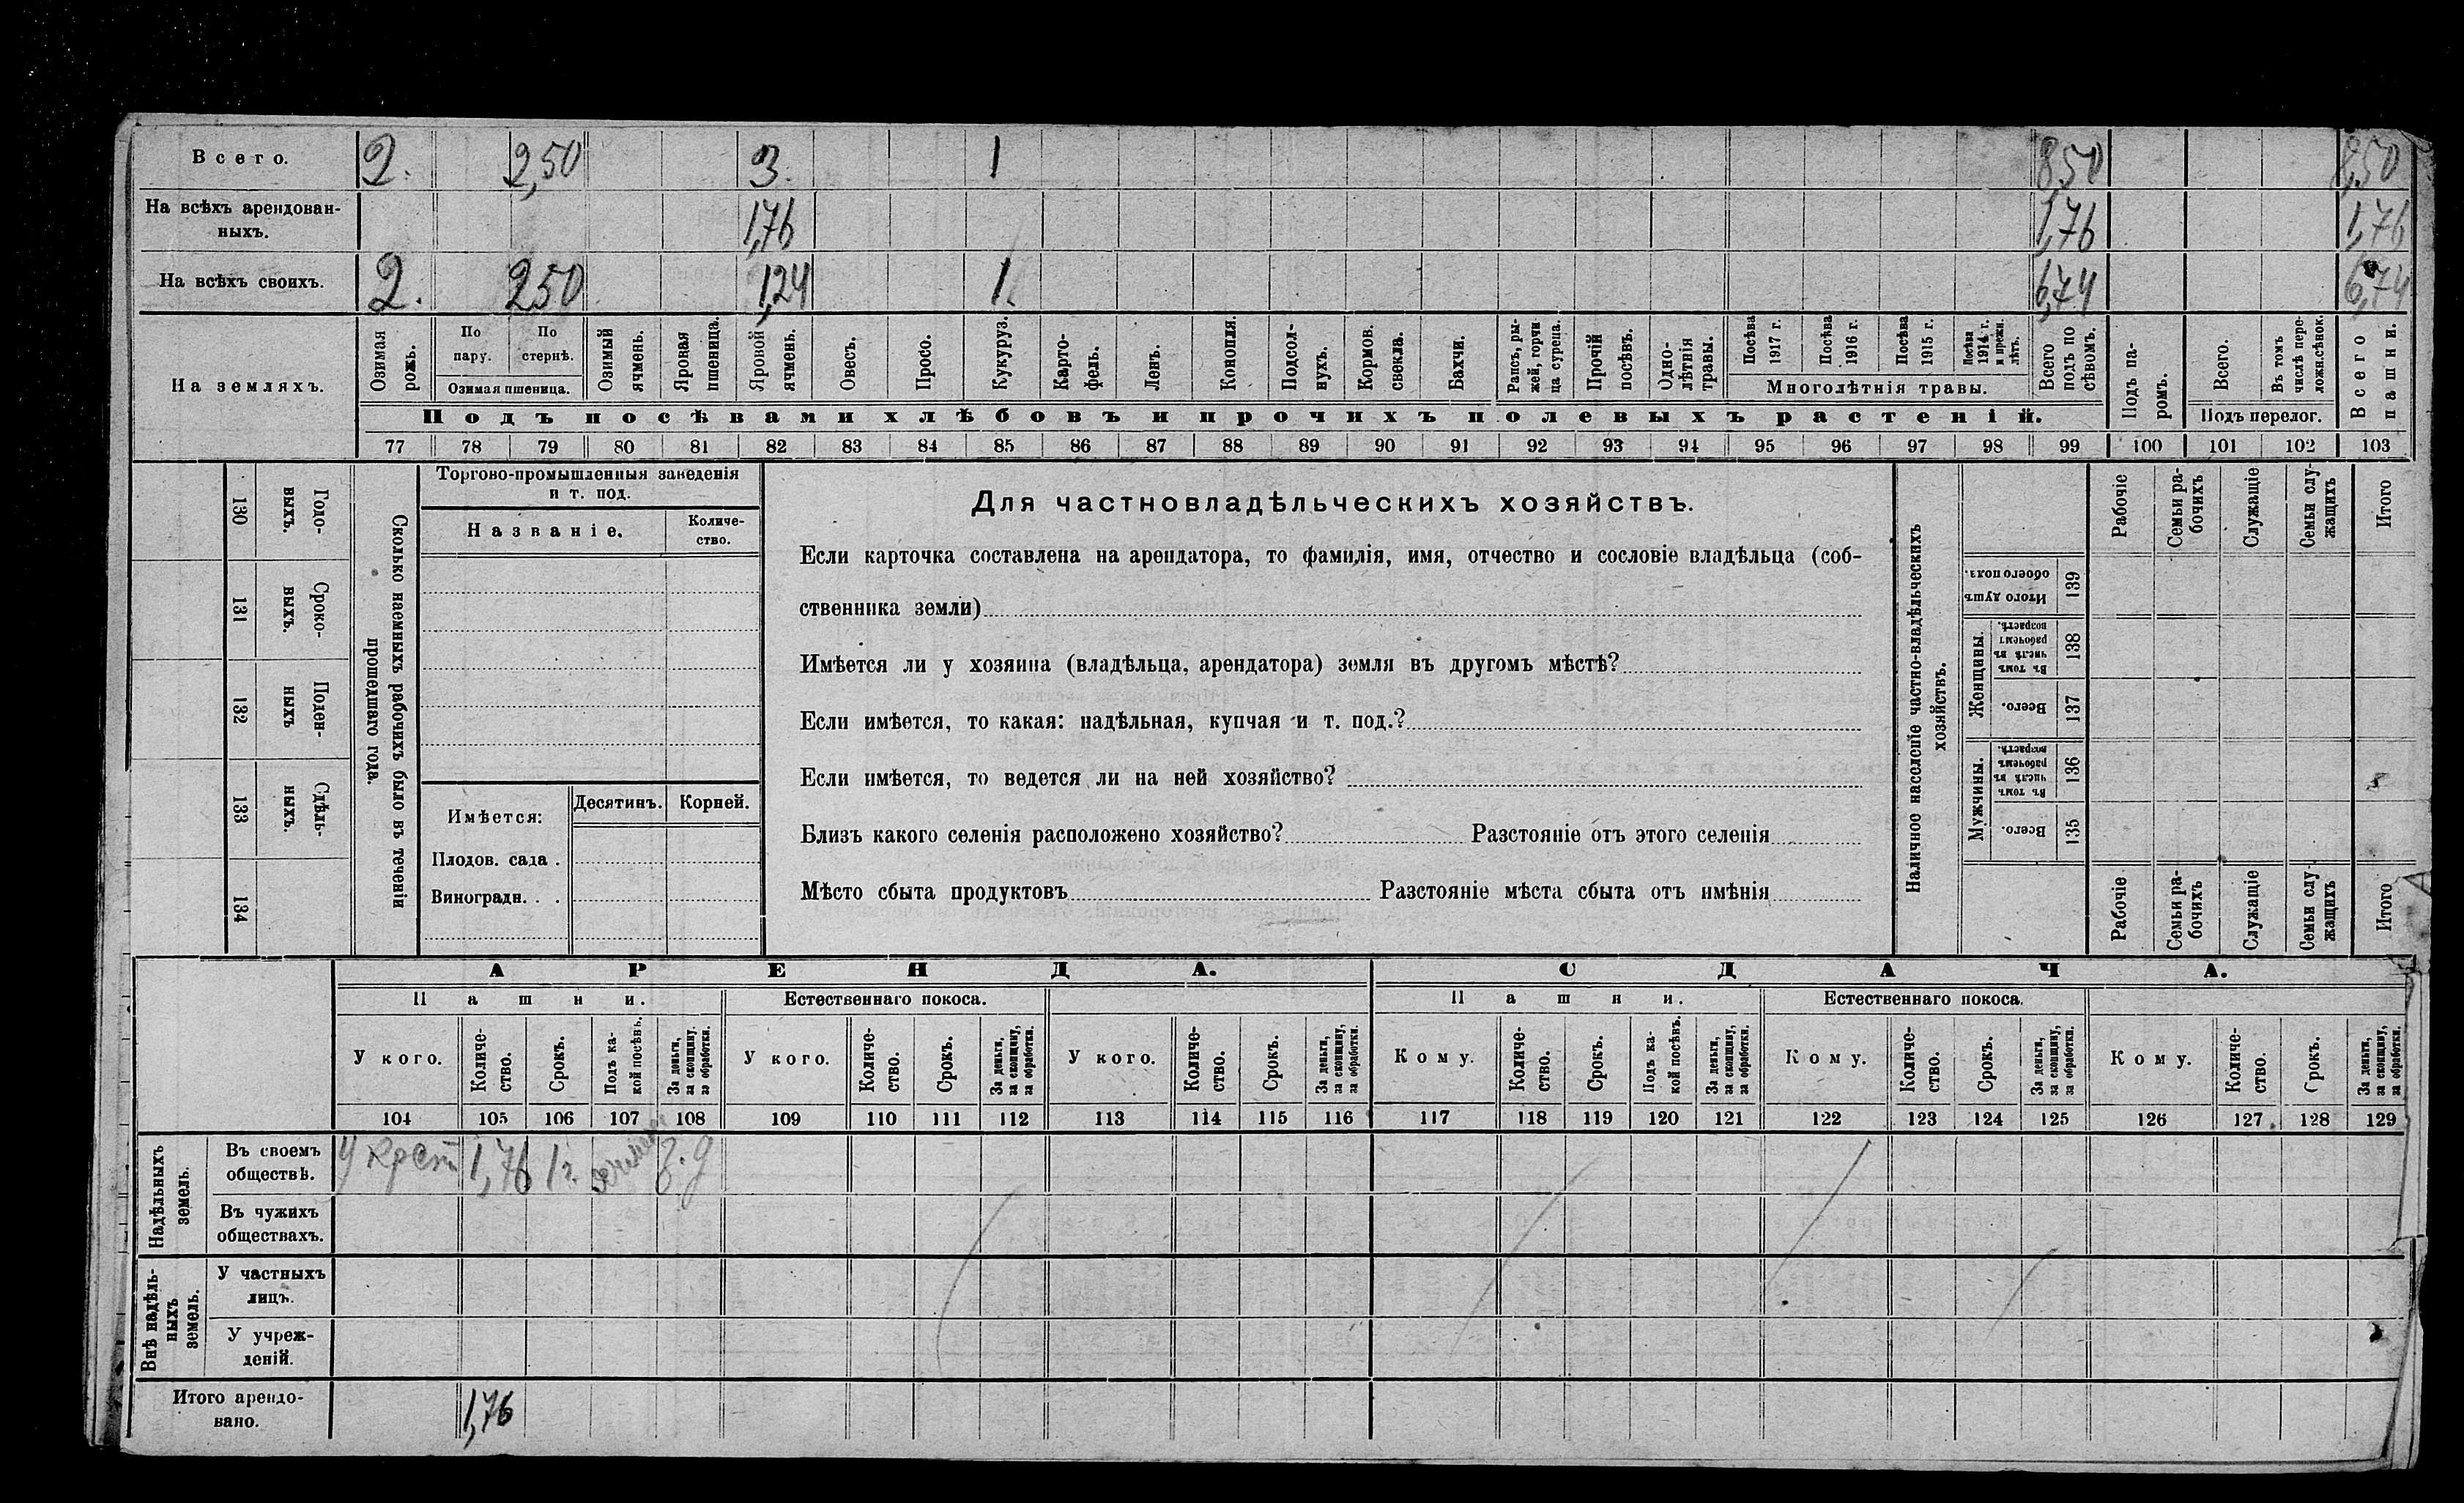 Всего. 2. 2,50 3. 1 8,50 8,50
На всѣхъ арендован-
ныхъ. 1,76 1,76 1,76
На всѣхъ своихъ. 2. 250 1,24 1. 6,74 6,74
На земляхъ.
Озимая рожь.
По пару.
По стернѣ.
Озимая пшеница.
Озимый ячмень.
Яровая пшеница.
Яровой ячмень.
Овесъ.
Просо.
Кукуруз.
Карто-
фель.
Ленъ.
Конопля.
Подсол-
нухъ.
Кормов. свекла.
Бахчи.
Рапсъ, ры-
жей, горчи
ца сурепа.
Прочій посѣвъ.
Одно-
лѣтнія
травы.
Посѣва 1917 г.
Посѣва 1916 г.
Посѣва 1915 г.
Посѣва 1914 г. и прежн. лѣтъ.
Многолѣтнія травы.
Всего подъ по
сѣвомъ.
Подъ па-
ромъ.
Всего.
Въ томъ числѣ пере-
ложн. сѣнок.
Подъ перелог.
Всего пашни.
Подъ посѣвами хлѣбовъ и прочихъ полевыхъ растеній.
77 78 79 80 81 82 83 84 85 86 87 88 89 90 91 92 93 94 95 96 97 98 99 100 101 102 103
130 Годо-
выхъ.
131 Сроко-
выхъ.
132 Поден-
ныхъ
133 Сдѣль-
ныхъ.
134
Сколько наемныхъ рабочихъ было въ теченіи
прошедшаго года.
Торгово-промышленныя заведенія
и т. под.
Названіе.
Количе-
ство.
Имѣется:
Десятинъ. Корней.
Плодов. сада .
Виноградн. . .
Для частновладѣльческихъ хозяйствъ.
Если карточка составлена на арендатора, то фамилія, имя, отчество и сословіе владѣльца (соб-
ственника земли)
Имѣется ли у хозяина (владѣльца, арендатора) земля въ другомъ мѣстѣ?
Если имѣется, то какая: надѣльная, купчая и т. под.?
Если имѣется, то ведется ли на ней хозяйство?
Близъ какого селенія расположено хозяйство? Разстояніе отъ этого селенія
Мѣсто сбыта продуктовъ Разстояніе мѣста сбыта отъ имѣнія
Наличное населеніе частно-владѣльческихъ
хозяйствъ.
Рабочіе
Семьи ра-
бочихъ
Служащіе
Семьи слу-
жащихъ
Итого
Итого душъ обоего пола. 139
Женщины.
Въ томъ числѣ въ рабочемъ возрастѣ. 138
Всего. 137
Мужчины.
Въ томъ числѣ въ рабочемъ возрастѣ. 136
Всего. 135
Рабочіе
Семьи ра-
бочихъ
Служащіе
Семьи слу-
жащихъ
Итого
АРЕНДА. СДАЧА.
Пашни. Естественнаго покоса. Пашни. Естественнаго покоса.
У кого.
Количе-
ство.
Срокъ.
Подъ ка-
кой посѣвъ.
За деньги,
за скопщину,
за обработки.
У кого.
Количе-
ство.
Срокъ.
За деньги,
за скопщину,
за обработки.
У кого.
Количе-
ство.
Срокъ.
За деньги,
за скопщину,
за обработки.
Кому.
Количе-
ство.
Срокъ.
Подъ ка-
кой посѣвъ.
За деньги,
за скопщину,
за обработки.
Кому.
Количе-
ство.
Срокъ.
За деньги,
за скопщину,
за обработки.
Кому.
Количе-
ство.
Срокъ.
За деньги,
за скопщину,
за обработки.
104 105 106 107 108 109 110 111 112 113 114 115 116 117 118 119 120 121 122 123 124 125 126 127 128 129
Надѣльныхъ
земель.
Въ своемъ
обществѣ. У крест 1,76 1 г. з. д
Въ чужихъ
обществахъ.
Внѣ надѣль-
ныхъ
земель.
У частныхъ
лицъ.
У учреж-
деній.
Итого арендо-
вано. 1,76